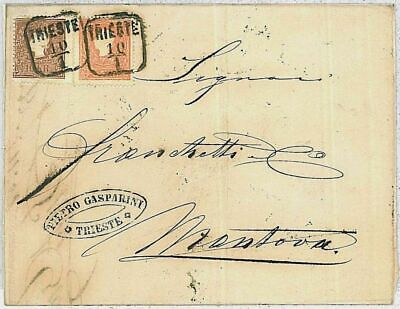 TRIESTE
10
1
TRIESTE
10
1
Signori
Franchetti & C
PIETRO GASPARINI
TRIESTE
Mantova